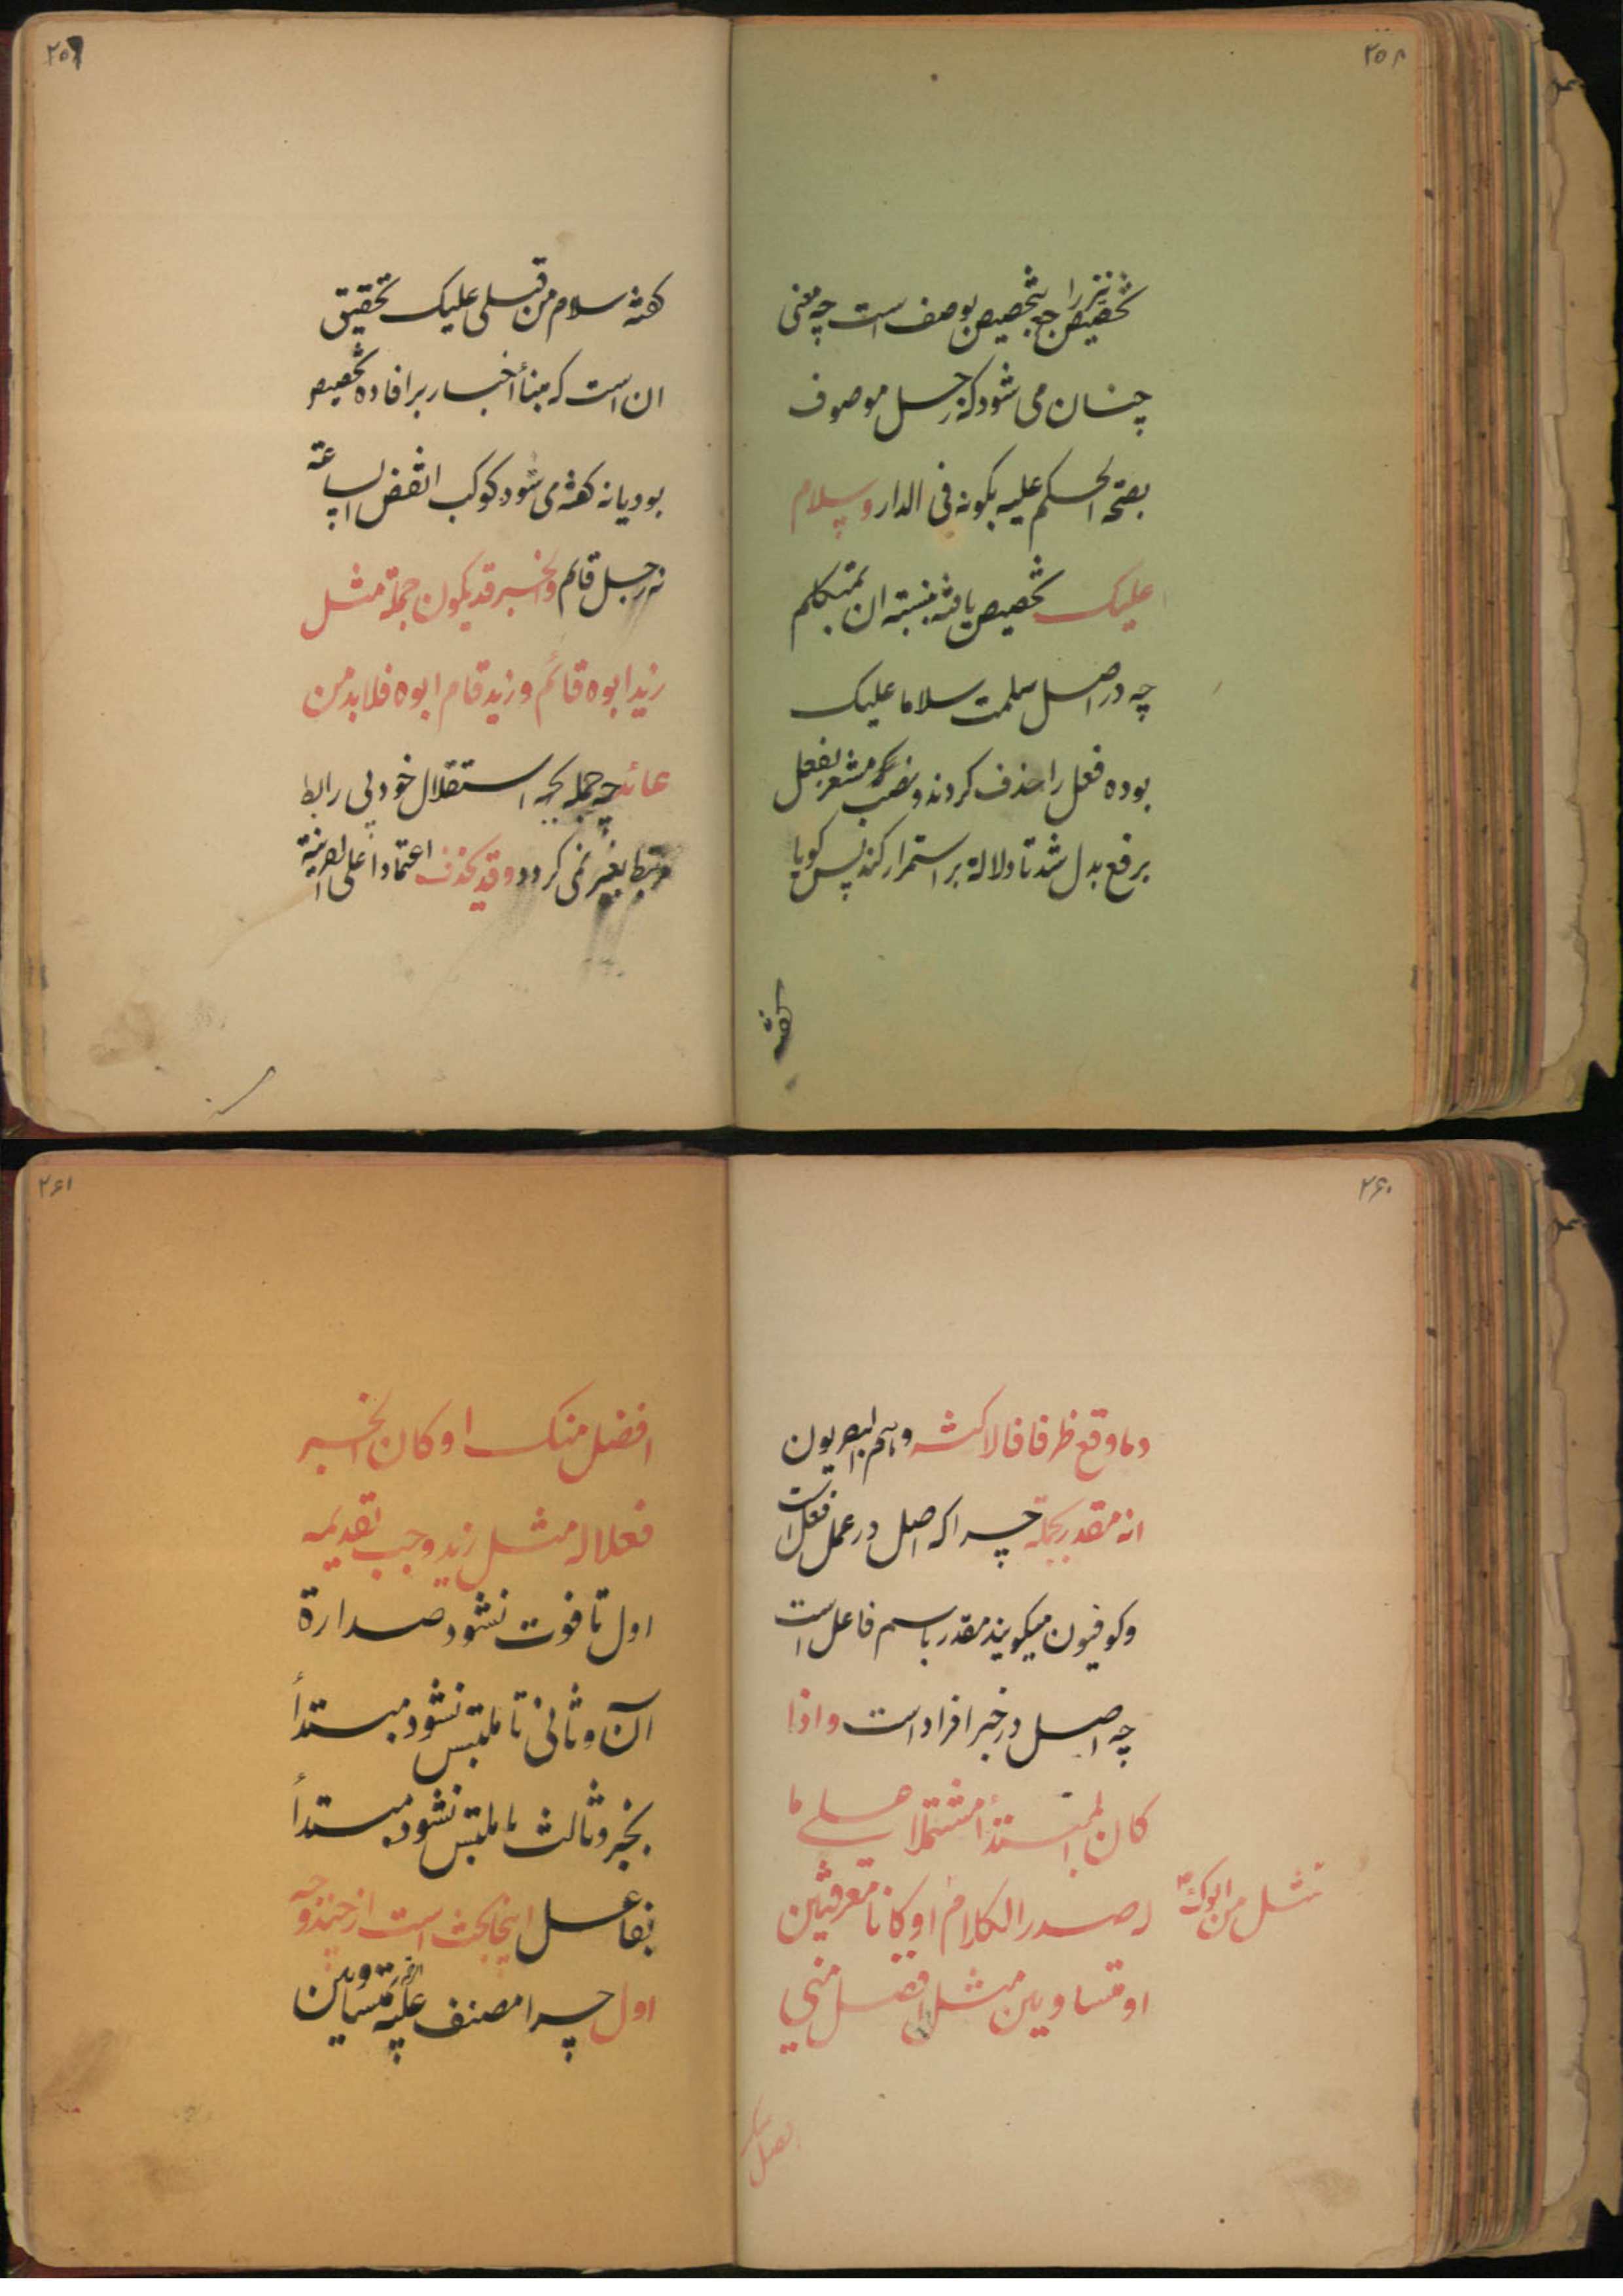 ۲۵۸
تخصیص نیز راجع بتخصیص بوصف است چه معنی
چنان می شود که رجل موصوف
بصحة الحکم علیه بکونه فی الدار وسلام
علیک تخصیص یافته بنسبته ان بمتکلم
چه در اصل سلمت سلاما علیک
بوده فعل را حذف کردند و نصب که مشعر بفعل
برفع بدل شد تا دلالة بر استمرار کند پس کویا
کفته
۲۵۹
کفته سلام من قبلی علیک تحقیق
ان است که مبنأ أخبار بر افاده تخصیص
بود یا نه کفته می شود کوکب انقض الساعة
نه رجل قائم والخبر قد یکون جملة مثل
زید ابوه قائم و زید قام ابوه فلا بد من
عائد چه جمله بجهه استقلال خود بی رابط
مرتبط بغیر نمی کردد وقد یحذف اعتمادا علی القرینة
۲۶۰
وما وقع ظرفا فالاکثر وهم البصریون
انه مقدر بجملة چرا که اصل در عمل فعل است
وکوفیون میکویند مقدر باسم فاعل است
چه اصل در خبر افراد است واذا
کان المبتدأ مشتملا علی ما
له صدر الکلام او کانا معرفتین
مثل من ابوک
او متساویین مثل افضل منی
افضل
۲۶۱
افضل منک او کان الخبر
فعلا له مثل زید وجب تقدیمه
اول تا فوت نشود صدارة
آن و ثانی تا ملتبس نشود مبتدأ
بخبر و ثالث تا ملتبس نشود مبتدأ
بفاعل اینجا بحث است از چند وجه
اول چرا مصنف علیه الرحمة متساویین